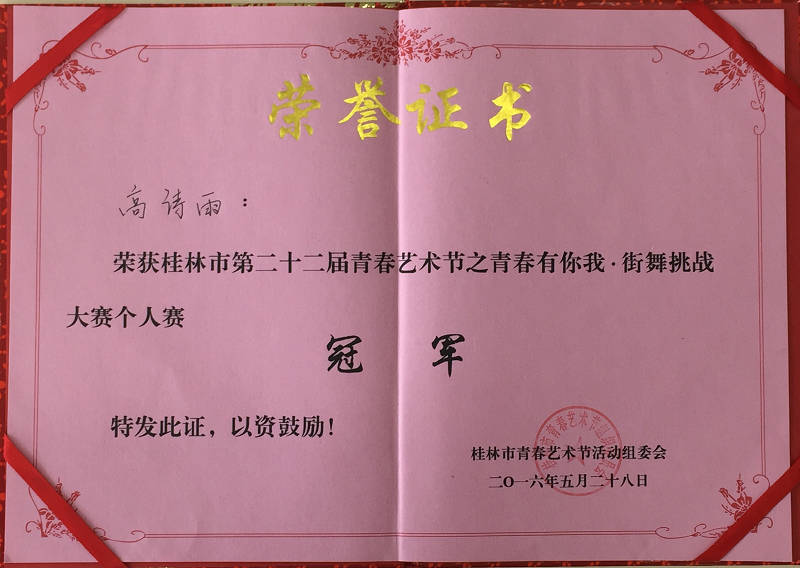 荣誉证书
高诗雨：
荣获桂林市第二十二届青春艺术节之青春有你我·街舞挑战
大赛个人赛
冠 军
特发此证，以资鼓励！
桂林市青春艺术节活动组委会
二〇一六年五月二十八日